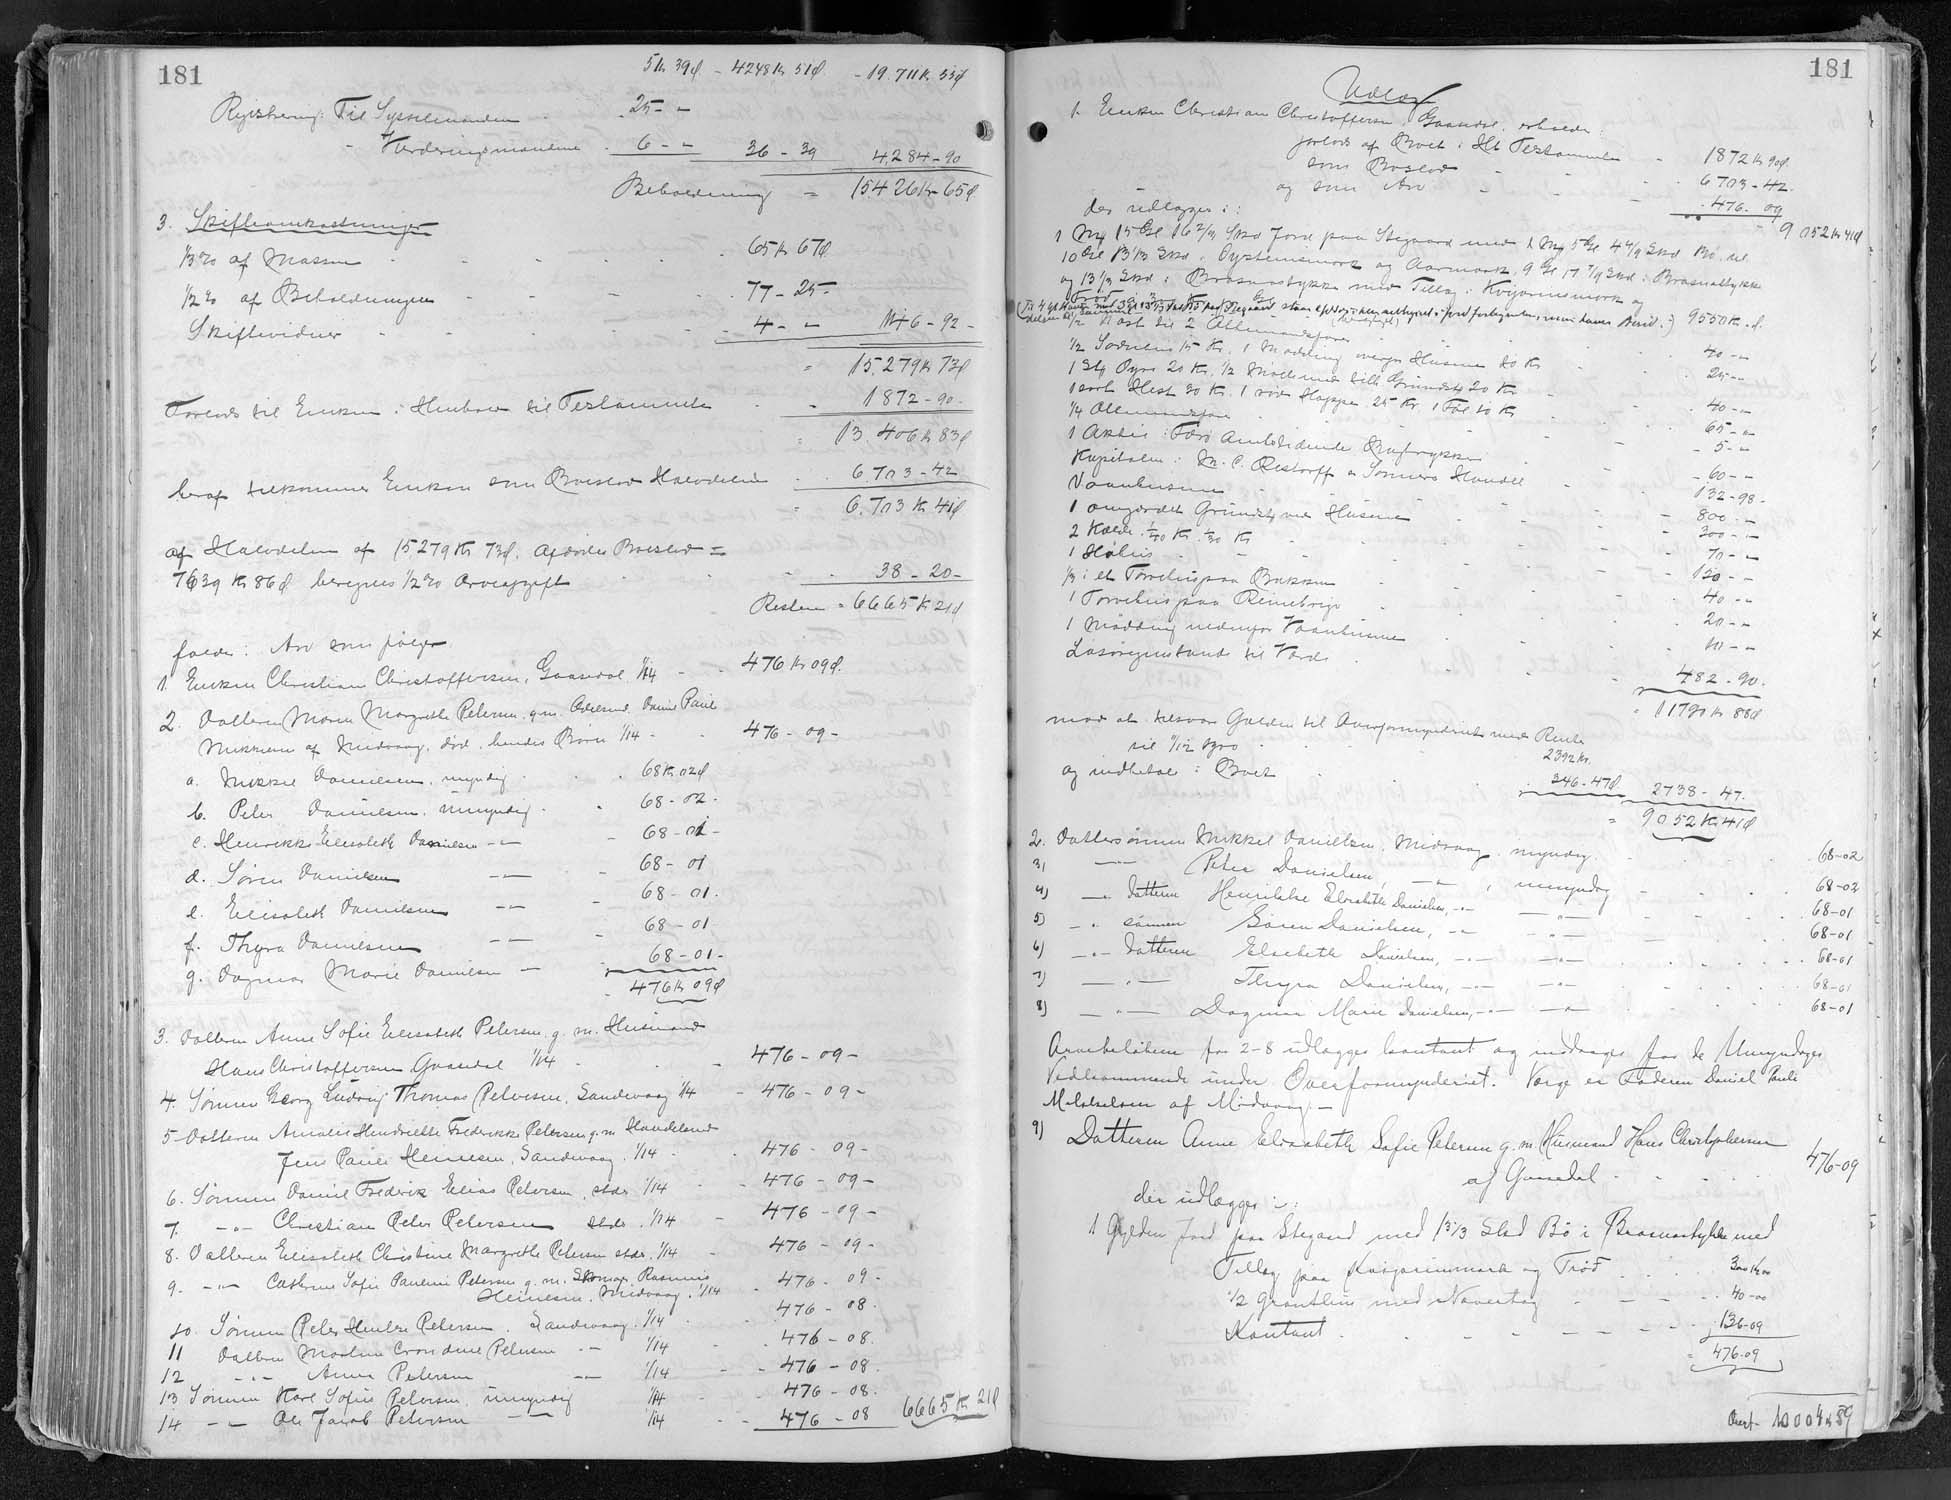 181
5 Kr 39 Ø - 4248 Kr 51 Ø - 19.711 Kr 55 Ø
Registrering: Til Sysselmanden - 25 - "
- Vurderingsmændene - 6 - " 36 - 39 4284 - 90
Beholdning = 15426 Kr 65 Ø
3. Skifteomkostninger
1/3 % af Massen - 65 Kr 67 Ø
1/2 % af Beholdningen - 77 - 25 -
Skiftevidner - 4 - " 146 - 92 -
= 15.279 Kr 73 Ø
Forlods til Enken i Henhold til Testamente - 1872 - 90 -
= 13.406 Kr 83 Ø
heraf tilkommer Enken som Boeslod Halvdelen 6.703 - 42
= 6.703 Kr 41 Ø
af Halvdelen af 15279 Kr 73 Ø. Afdødes Boeslod =
7639 Kr 86 Ø beregnes 1/2 % Arveafgift 38 - 20 -
Resten = 6665 Kr 21 Ø
falder i Arv som følger
1. Enken Christiane Christoffersen, Gaasedal 1/14 - 476 Kr 09 Ø.
2. Datteren Maren Margrethe Petersen, g.m. Daniel Pauli
Mikkelsen af Midvaag, død, hendes Børn 1/14 - 476 - 09 -
a. Mikkel Danielsen, myndig 68 Kr 02 Ø
b. Peter Danielsen, umyndig 68 - 02 -
c. Henrikke Elisabeth Danielsen - " - 68 - 01 -
d. Søren Danielsen - " - 68 - 01
e. Elisabeth Danielsen - " - 68 - 01 -
f. Thyra Danielsen - " - 68 - 01 -
g. Dagmar Marie Danielsen - 68 - 01 -
476 Kr 09 Ø
3. Datteren Anne Sofie Elisabeth Petersen, g. m. Husmand
Hans Christoffersen Gaasedal 1/14 - 476 - 09 -
4. Sønnen Georg Ludvig Thomas Petersen, Sandevaag 1/14 - 476 - 09 -
5 - Datteren Amalie Hendriette Frederikke Petersen g. m. Handelsmd
Jens Pauli Heinesen, Sandevaag, 1/14 - 476 - 09 -
6. Sønnen Daniel Frederik Elias Petersen, stds 1/14 - 476 - 09 -
7. - " - Christian Peter Petersen stds 1/14 - 476 - 09 -
8. Datteren Elisabeth Christine Margrethe Petersen stds. 1/14 - 476 - 09 -
9. - " - Cathrine Sofie Pauline Petersen g. m. Skomag. Rasmus
Heinesen, Midvaag, 1/14 - 476 - 09 -
10. Sønnen Peter Petersen, Sandevaag 1/14 - 476 - 08 -
11 Datteren Petersen - " - 1/14 - 476 - 08.
12 - " - Anna Petersen - " - 1/14 - 476 - 08.
13 Sønnen Karl Sofus Petersen, umyndig 1/14 - 476 - 08.
14 - " - Ole Jacob Petersen - " - 1/14 - 476 - 08 6665 Kr 21 Ø
181
Udlæg
1. Enken Christiane Christoffersen, Gaasedal, erholder:
forlods af Boet i Hh. Testamente - 1872 Kr 90 Ø.
som Boeslod - 6703 - 42.
og som Arv - 476 - 09
9052 Kr 41 Ø
der udlægges::
1 Mk 15 Gl 16 2/3 Skd Jord paa Stegaard med 1 Mk 5 Gl 4 4/9 Skd Bø
10 Gl 13 1/3 Skd i Oysteinsmork og Aarmork, 9 Gl 17 7/9 Skd i
og 13 1/3 Skd i med Tillæg i Kvigarinsmork og
Trød 9550 Kr. Ø.
1/2 Nøst til 2 40 - "
1/2 15 Kr. 1 Mødding ovenfor Husene 10 Kr 25 - "
1 Stk 20 Kr. 1/2 20 Kr 40 - "
1 sort Hest 30 Kr. 1 rød Hoppe 25 Kr. 1 Føl 10 Kr 65 - "
1/4 - 5 - "
1 Aktie i Færø Amtstidende Bogtrykkeri - 60 - "
Kapitalen i M. C. Restorff & Sønners Handel 132 - 98 -
Vaanhusene - 800 - "
1 omgærdet Grundstk ved Husene - 300 - "
2 Kælde 1/40 Kr. 1/30 Kr - 70 - "
1 Hølus - 150 - "
1/3 i et Tørvehus paa Bakken - 40 - "
1 Tørvehus paa 20 - "
1 Mødding nedenfor Vaanhusene 10 - "
Løsøregenstande til Værdi - 482 - 90.
= 11790 Kr 88 Ø
mod at tilsvare Gælden til Overformynderiet med Rente
til 11/12 1920 2392 Kr.
og indbetale i Boet 346 - 47 Ø 2738 - 47.
= 9052 Kr 41 Ø
2. Dattersønnen Mikkel Danielsen, Midvaag, myndig 68 - 02
3) - " - Peter Danielsen, - " -, umyndig 68 - 02
4) - " - datteren Henrikke Elisabeth Danielsen, - " - - " - 68 - 01
5) - " - sønnen Søren Danielsen, - " - - " - 68 - 01
6) - " - datteren Elsebeth Danielsen, - " - - " - 68 - 01
7) - " - Thyra Danielsen, - " - - " - 68 - 01
8) - " - Dagmar Marie Danielsen, - " - - " - 68 - 01
Arvebeløbene for 2-8 udlægges kontant og inddrages for de Umyndiges
Vedkommende under Overformynderiet. Værge er Faderen Daniel Pauli
Mikkelsen af Midvaag. -
9) Datteren Anne Elisabeth Sofie Petersen g. m. Husmand Hans Christoffersen
af Gaasedal - 476 - 09
der udlægges::
1 Gylden Jord paa Stegaard med 13 1/3 Skd Bø i med
Tillæg paa Kvigarinsmark og Trød 300 Kr 00
1/2 med 40 - 00
Kontant - 136 - 09
= 476 - 09
Overf - 10004 Kr 59